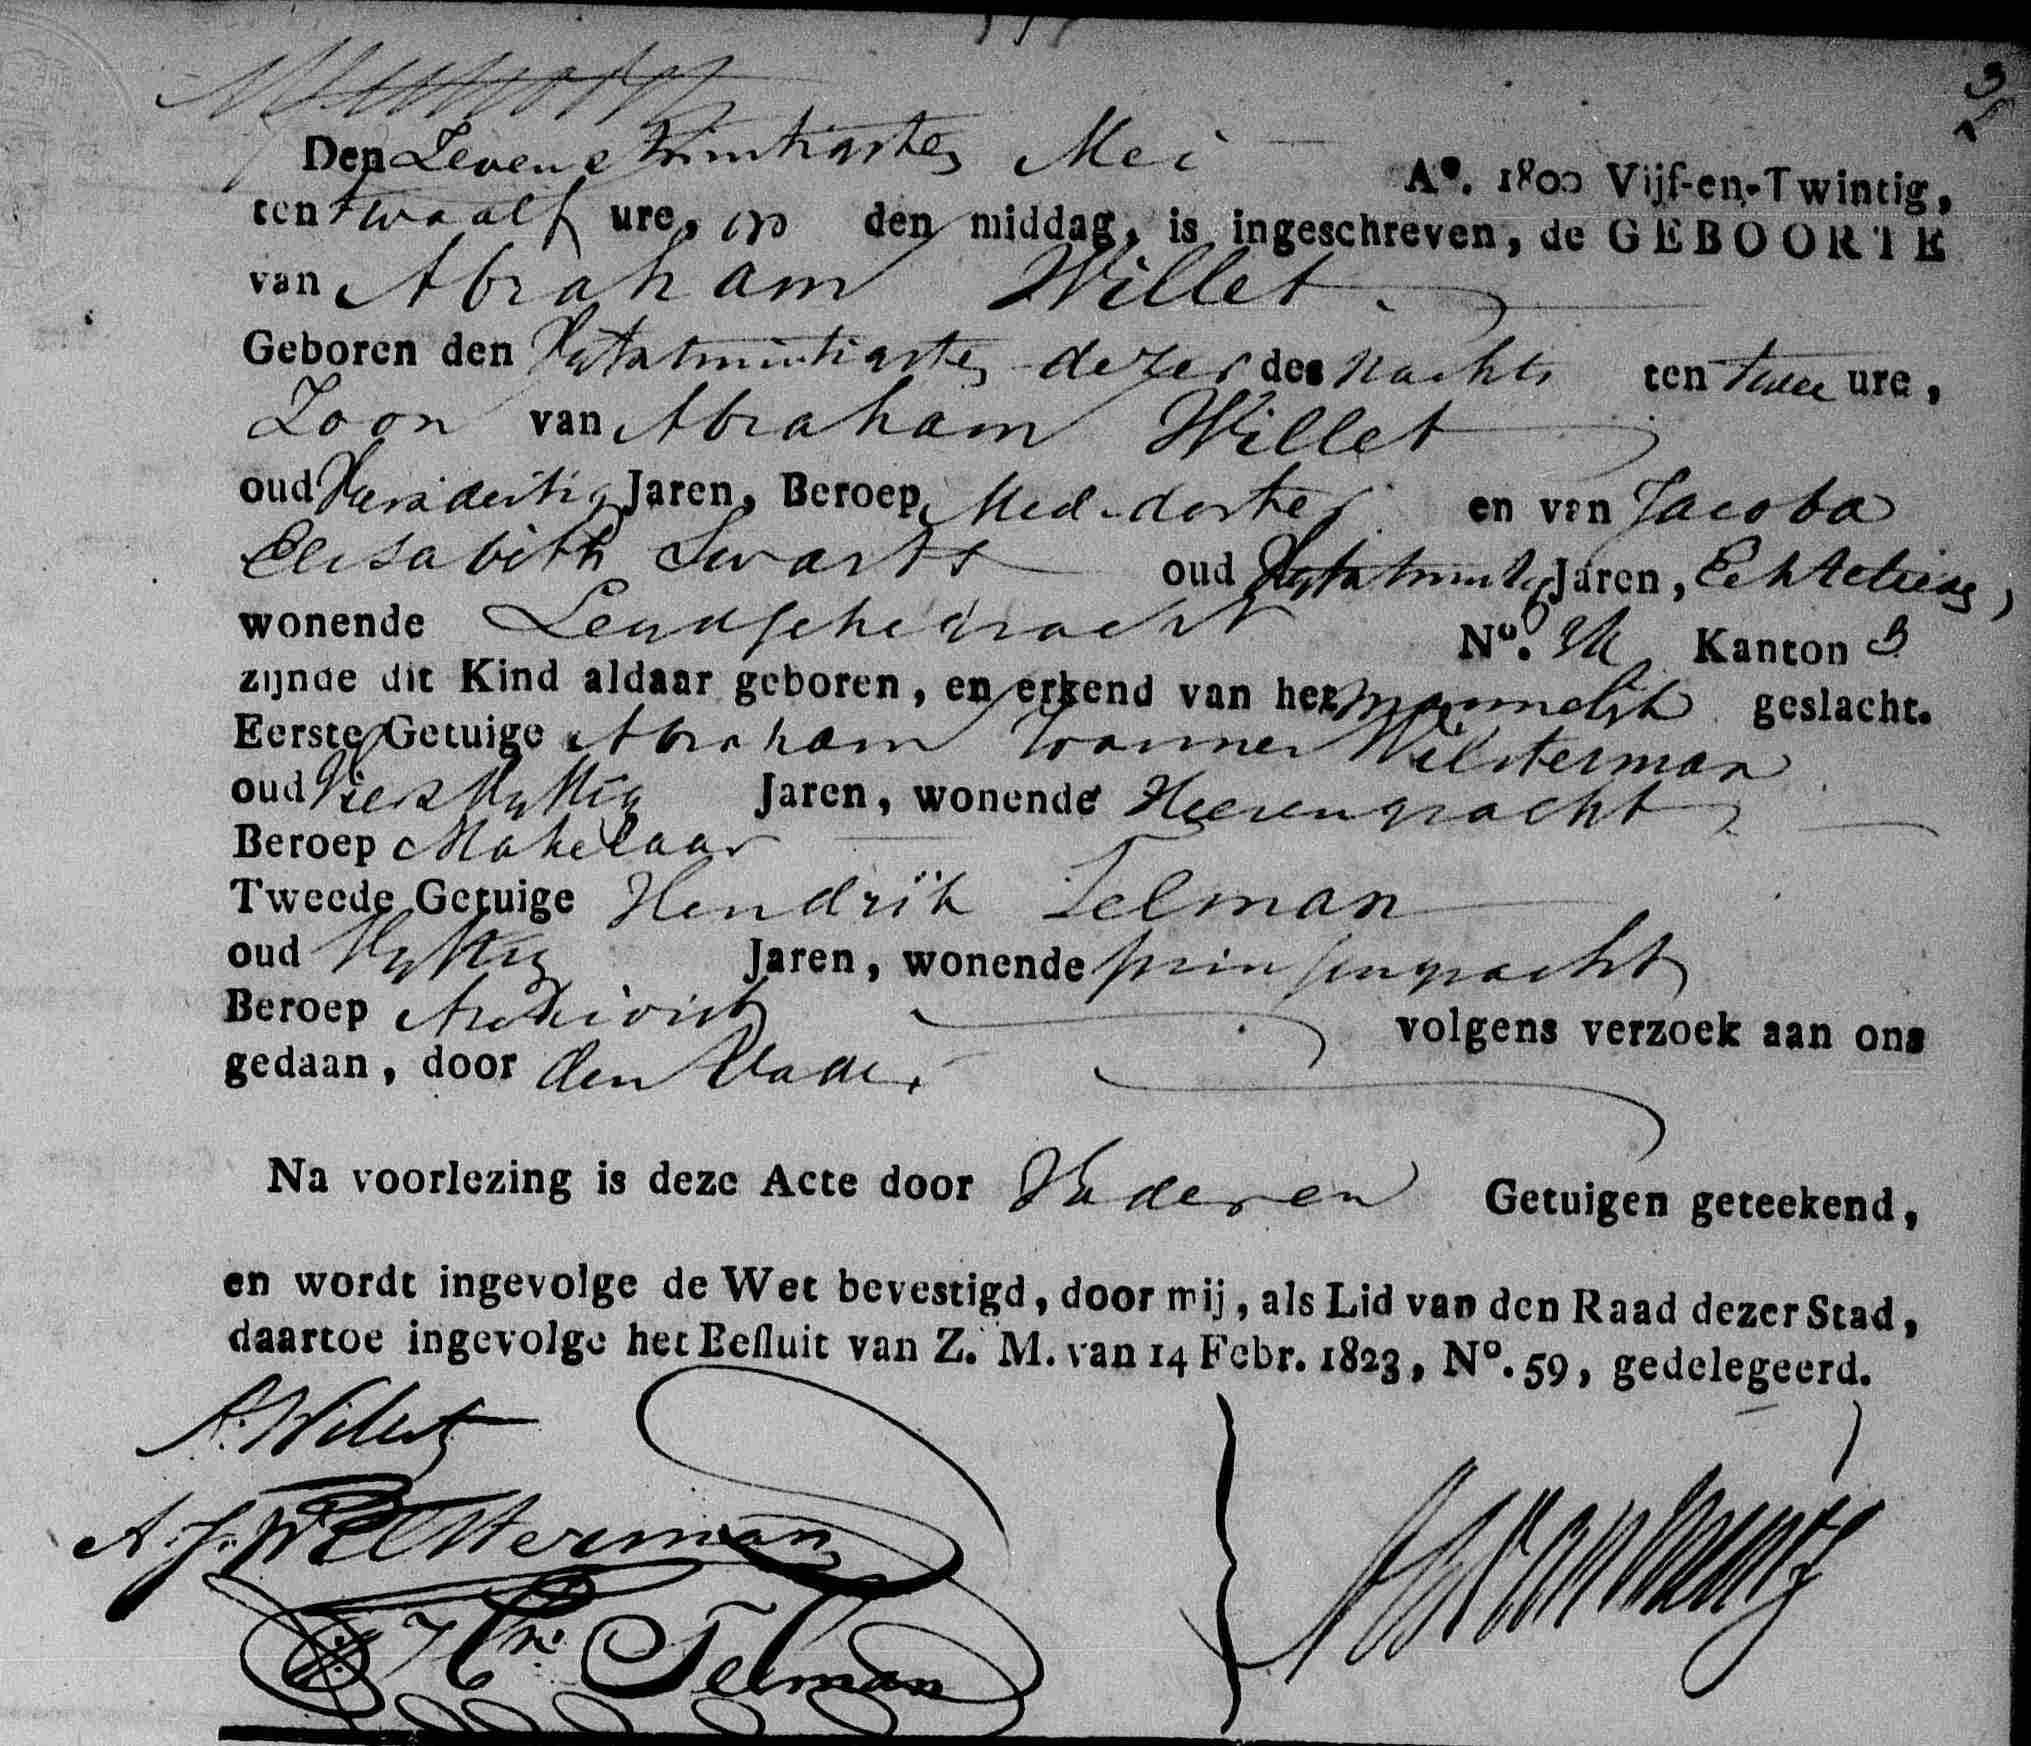 Den Zeven & twintigsten Mei Aº. 1800 Vijf-en-Twintig,
ten twaalf ure, op den middag, is ingeschreven, de GEBOORTE
van Abraham Willet
Geboren den Vijf&twintigsten dezer des Nachts ten twee ure,
Zoon van Abraham Willet
oud Jaren, Beroep Med. docter en van Jacoba
Elisabeth Swarts oud Vijf&twintig Jaren, Echtelieden,
wonende Leydschegracht Nº. Kanton 3
zijnde dit Kind aldaar geboren, en erkend van het mannelijk geslacht.
Eerste Getuige Abraham Joannes Wilsterman
oud Vier & Vyftig Jaren, wonende Heerengracht
Beroep Makelaar
Tweede Getuige Hendrik Telman
oud Vyftig Jaren, wonende prinsengracht
Beroep Archivist volgens verzoek aan ons
gedaan, door den Vader
Na voorlezing is deze Acte door Vader en Getuigen geteekend,
en wordt ingevolge de Wet bevestigd, door mij, als Lid van den Raad dezer Stad,
daartoe ingevolge het Besluit van Z. M. van 14 Febr. 1823, Nº. 59, gedelegeerd.
A. Willet
A. J. Wilsterman
Hk. Telman